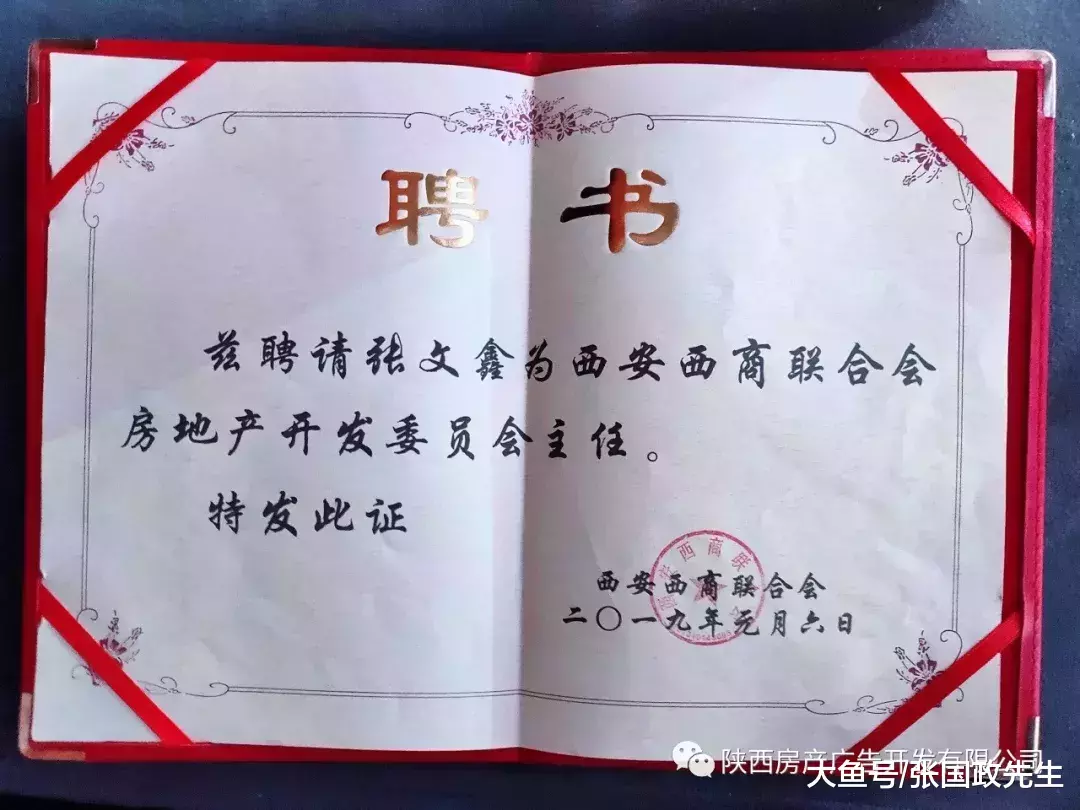 聘书
兹聘请张文鑫为西安西商联合会
房地产开发委员会主任。
特发此证
西安西商联合会
二〇一九年元月六日
陕西房产广告开发有限公司
大鱼号/张国政先生